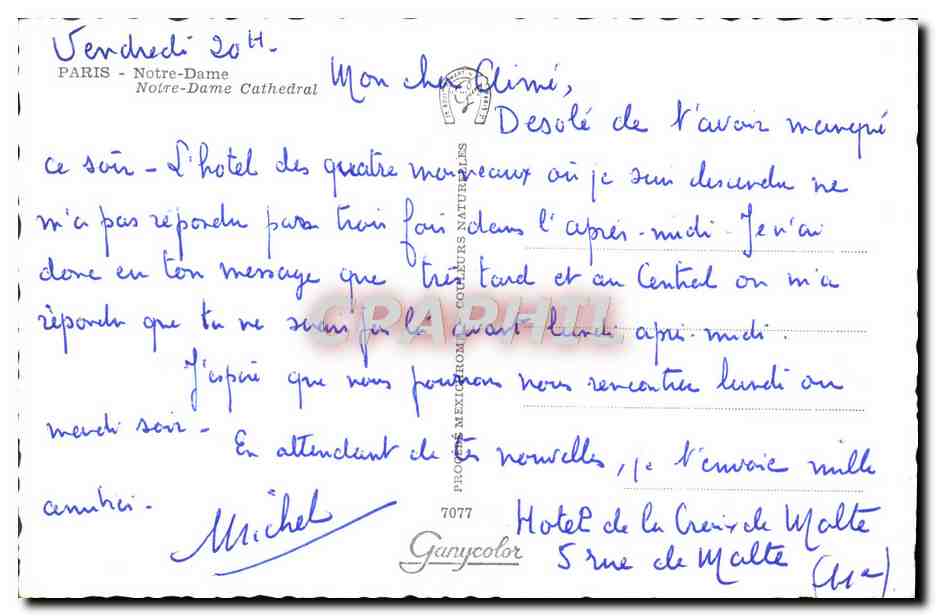 Vendredi 20 H.
PARIS - Notre-Dame
Notre-Dame Cathedral
Mon cher Aimé,
Desolé de t'avoir manqué
ce soir - L'hotel des quatre où je suis descendu ne
m'a pas répondu trois fois dans l'après-midi - Je n'ai
donc eu ton message que très tard et au Central on m'a
répondu que tu ne serais pas là avant lundi après-midi.
J'espère que nous pourrons nous rencontrer lundi ou
mardi soir -
En attendant de tes nouvelles, je t'envoie mille
amitiés -
Michel
Hotel de la Croix de Malte
5 rue de Malte
(11e)
PROCÉDÉ MEXICHROME COULEURS NATURELLES
7077
Ganycolor
CPAPHIL